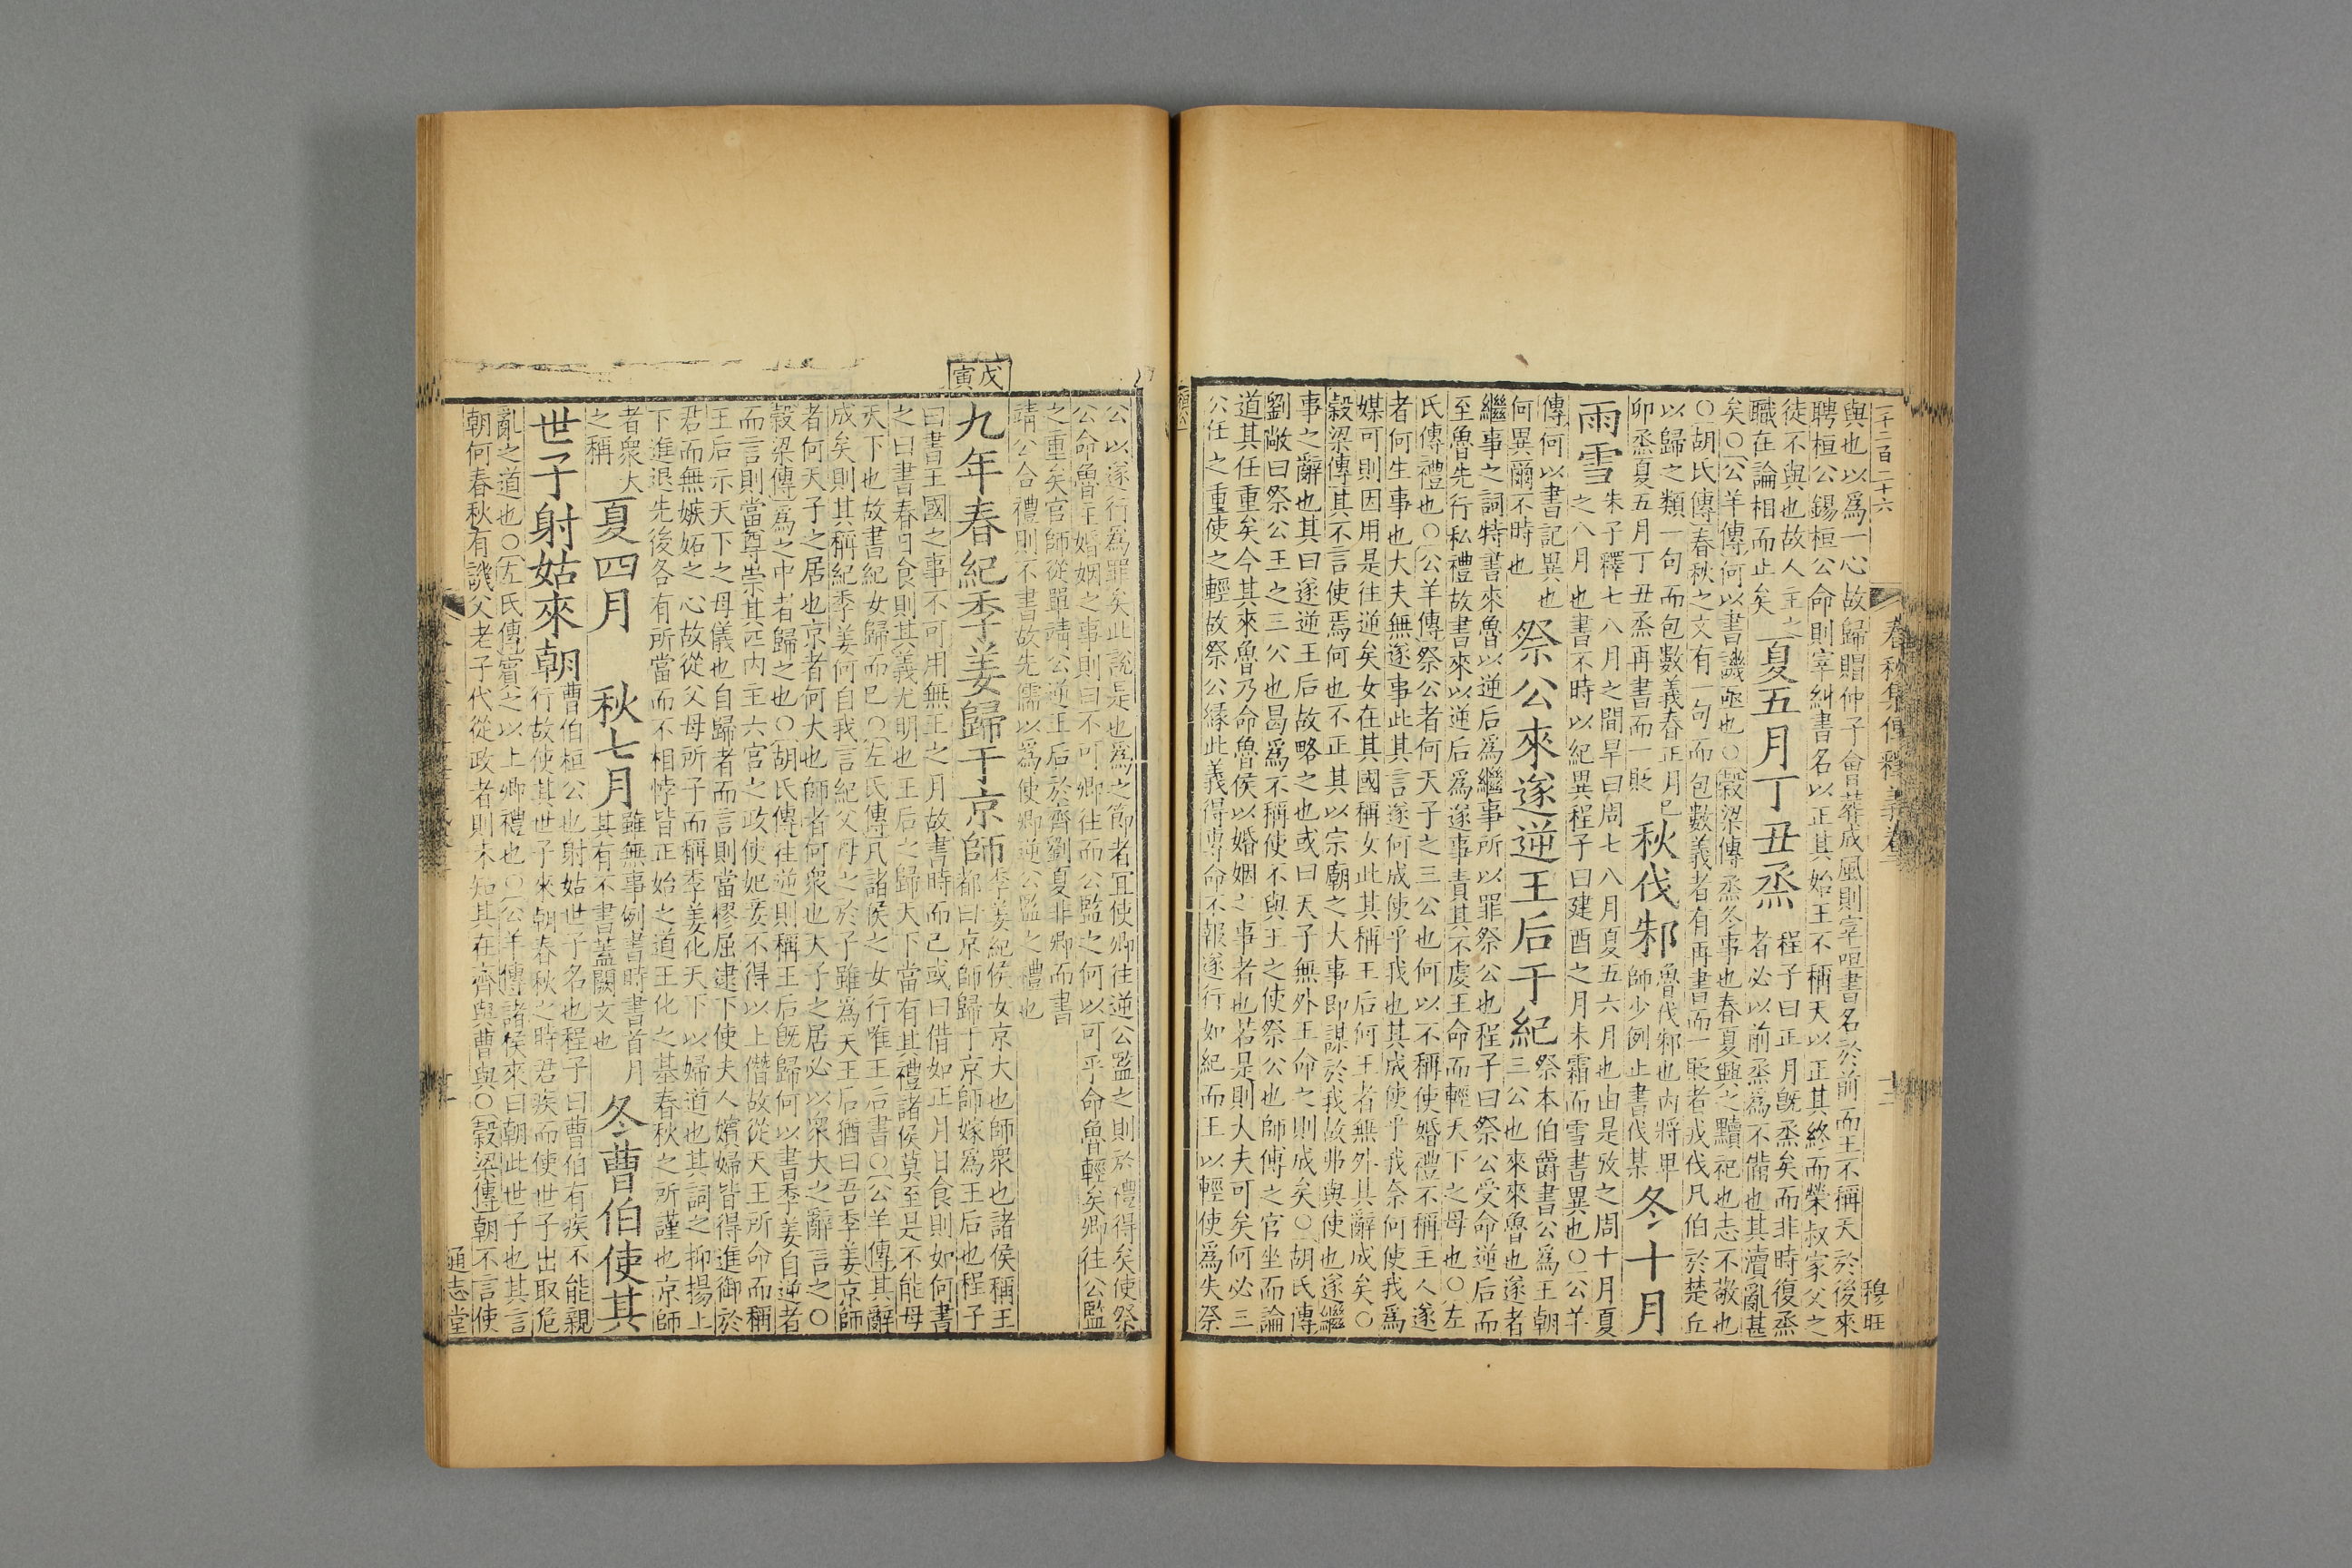 二千二百二十六
春秋集傳釋義卷三
十三
穆旺
與也以爲一心故歸賵仲子會葬成風則宰咺書名於前而王不稱天於後來
聘桓公錫桓公命則宰糾書名以正其始王不稱天以正其終而榮叔家父之
徒不與也故人主之
職在論相而止矣
夏五月丁丑烝
程子曰正月旣烝矣而非時復烝
者必以前烝爲不備也其瀆亂甚
矣○公羊傳何以書譏亟也○穀梁傳烝冬事也春夏興之黷祀也志不敬也
○胡氏傳春秋之文有一句而包數義者有再書而一貶者戎伐凡伯於楚丘
以歸之類一句而包數義春正月己
卯烝夏五月丁丑烝再書而一貶
秋伐邾
魯伐邾也內將卑
師少例止書伐某
冬十月
雨雪
朱子釋七八月之間旱曰周七八月夏五六月也由是攷之周十月夏
之八月也書不時以紀異程子曰建酉之月未霜而雪書異也○公羊
傳何以書記異也
何異爾不時也
祭公來遂逆王后于紀
祭本伯爵書公爲王朝
三公也來來魯也遂者
繼事之詞特書來魯以逆后爲繼事所以罪祭公也程子曰祭公受命逆后而
至魯先行私禮故書來以逆后爲遂事責其不虔王命而輕天下之母也○左
氏傳禮也○公羊傳祭公者何天子之三公也何以不稱使婚禮不稱主人遂
者何生事也大夫無遂事此其言遂何成使乎我也其成使乎我奈何使我爲
媒可則因用是往逆矣女在其國稱女此其稱王后何王者無外其辭成矣○
穀梁傳其不言使焉何也不正其以宗廟之大事即謀於我故弗與使也遂繼
事之辭也其曰遂逆王后故略之也或曰天子無外王命之則成矣○胡氏傳
劉敞曰祭公王之三公也曷爲不稱使不與王之使祭公也師傅之官坐而論
道其任重矣今其來魯乃命魯侯以婚姻之事者也若是則大夫可矣何必三
公任之重使之輕故祭公緣此義得專命不報遂行如紀而王以輕使爲失祭
公以遂行爲罪矣此說是也爲之節者宜使卿往逆公監之則於禮得矣使祭
公命魯主婚姻之事則曰不可卿往而公監之何以可乎命魯輕矣卿往公監
之重矣官師從單靖公逆王后於齊劉夏非卿而書
靖公合禮則不書故先儒以爲使卿逆公監之禮也
戊寅
九年春紀季姜歸于京師
季姜紀侯女京大也師衆也諸侯稱王
都曰京師歸于京師嫁爲王后也程子
曰書王國之事不可用無王之月故書時而已或曰借如正月日食則如何書
之曰書春日食則其義尤明也王后之歸天下當有其禮諸侯莫至是不能母
天下也故書紀女歸而已○左氏傳凡諸侯之女行唯王后書○公羊傳其辭
成矣則其稱紀季姜何自我言紀父母之於子雖爲天王后猶曰吾季姜京師
者何天子之居也京者何大也師者何衆也天子之居必以衆大之辭言之○
穀梁傳爲之中者歸之也○胡氏傳往逆則稱王后旣歸何以書季姜自逆者
而言則當尊崇其匹內主六宮之政使妃妾不得以上僭故從天王所命而稱
王后示天下之母儀也自歸者而言則當樛屈逮下使夫人嬪婦皆得進御於
君而無嫉妬之心故從父母所子而稱季姜化天下以婦道也其詞之抑揚上
下進退先後各有所當而不相悖皆正始之道王化之基春秋之所謹也京師
者衆大
之稱
夏四月
秋七月
雖無事例書時書首月
其有不書蓋闕文也
冬曹伯使其
世子射姑來朝
曹伯桓公也射姑世子名也程子曰曹伯有疾不能親
行故使其世子來朝春秋之時君疾而使世子出取危
亂之道也○左氏傳賓之以上卿禮也○公羊傳諸侯來曰朝此世子也其言
朝何春秋有譏父老子代從政者則未知其在齊與曹與○穀梁傳朝不言使
通志堂